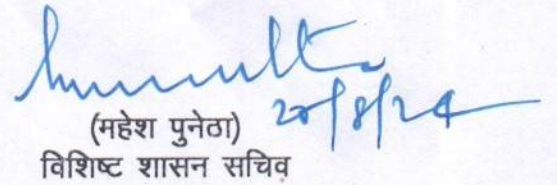 20/8/24
(महेश पुनेठा)
विशिष्ट शासन सचिव